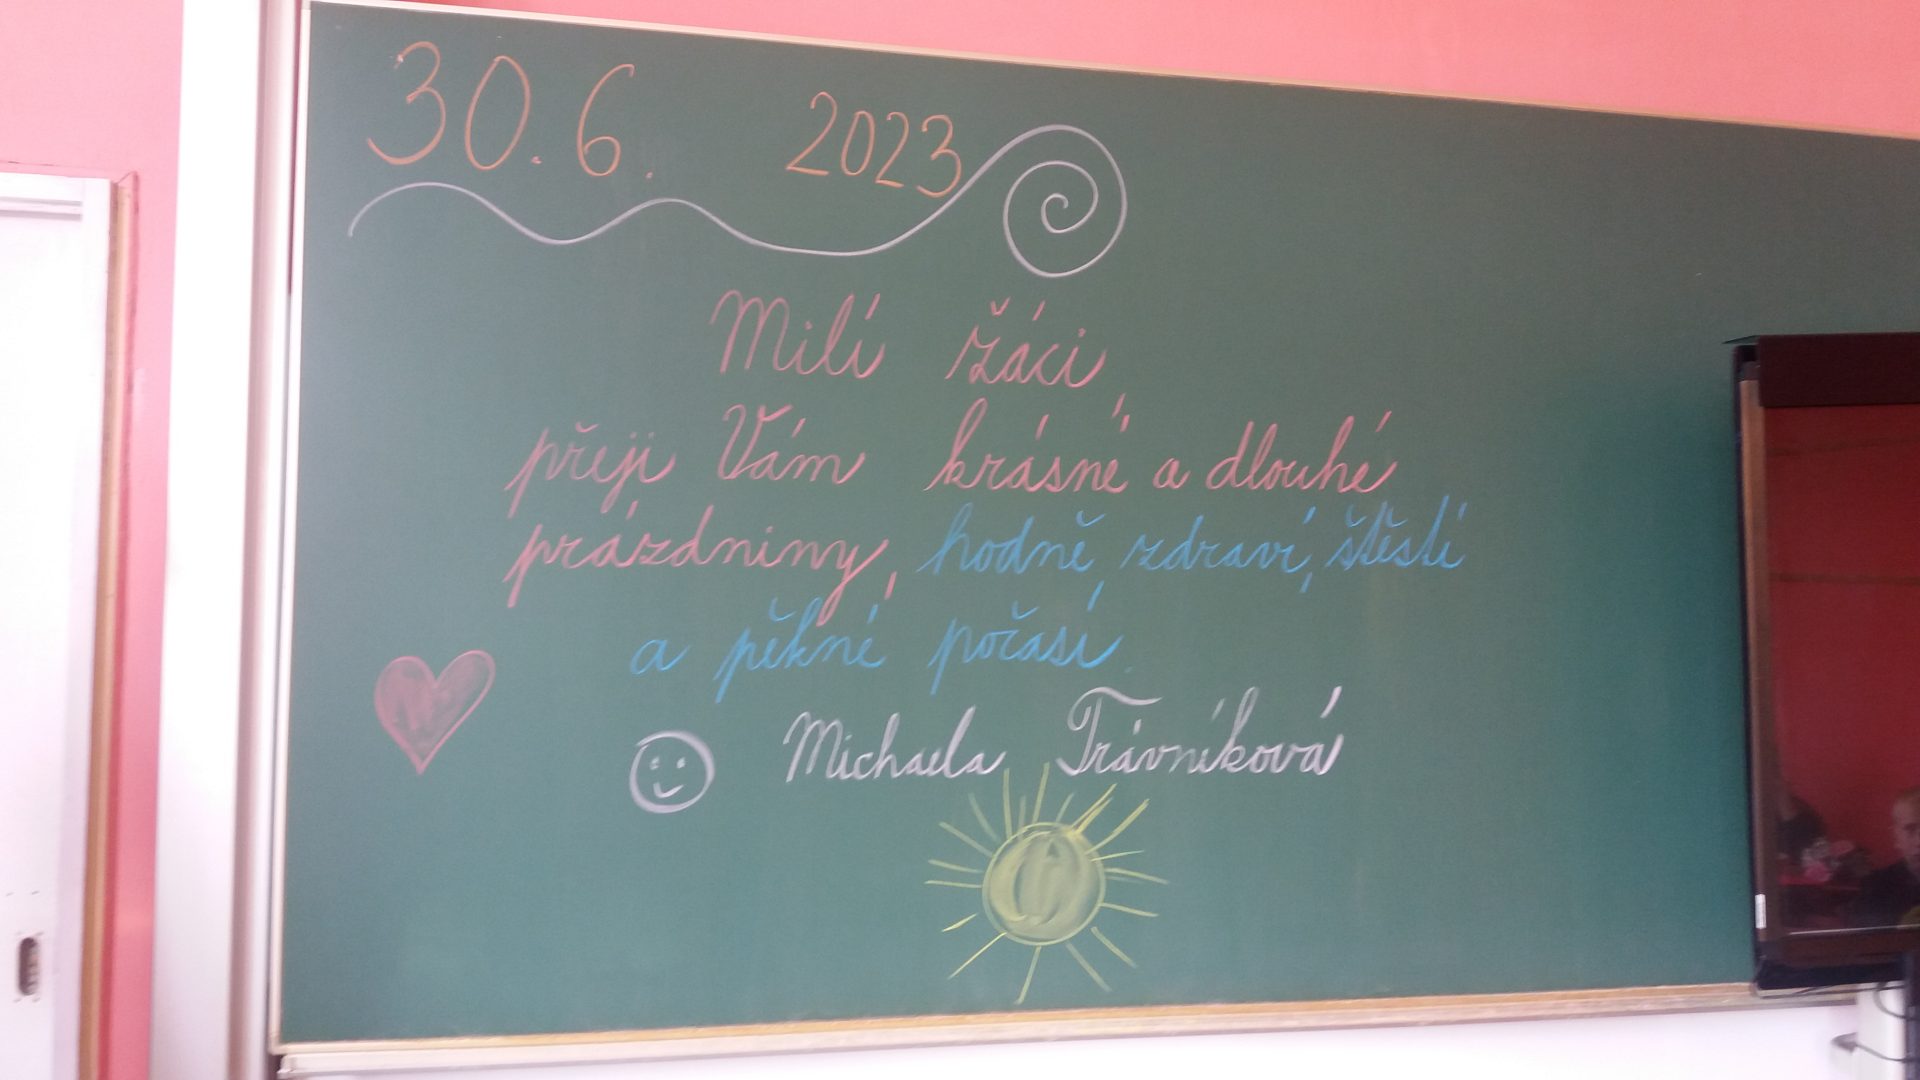 30.6. 2023
Milí žáci,
přeji Vám krásné a dlouhé
prázdniny, hodně, zdraví, štěstí
a pěkné počasí.
Michaela Trávníková